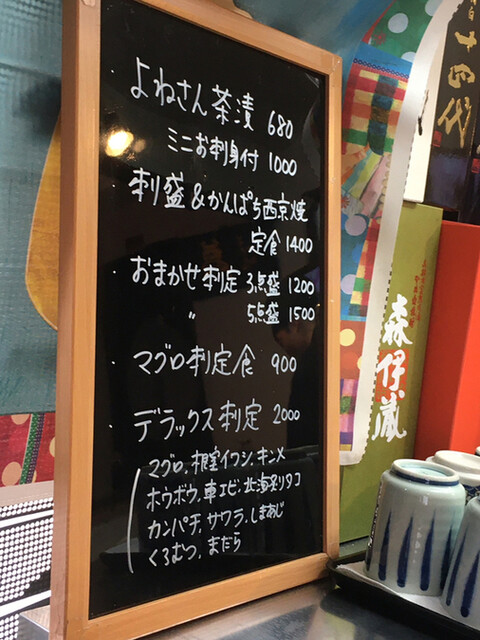 よねさん茶漬 680
ミニお刺身付 1000
刺盛&かんぱち西京焼
定食 1400
おまかせ刺定 3点盛 1200
〃 5点盛 1500
マグロ刺定食 900
デラックス刺定 2000
マグロ、根室イワシ、キンメ
ホウボウ、車エビ、北海タコ
カンパチ、サワラ、しまあじ
くろむつ、まだら
十四代
森伊蔵